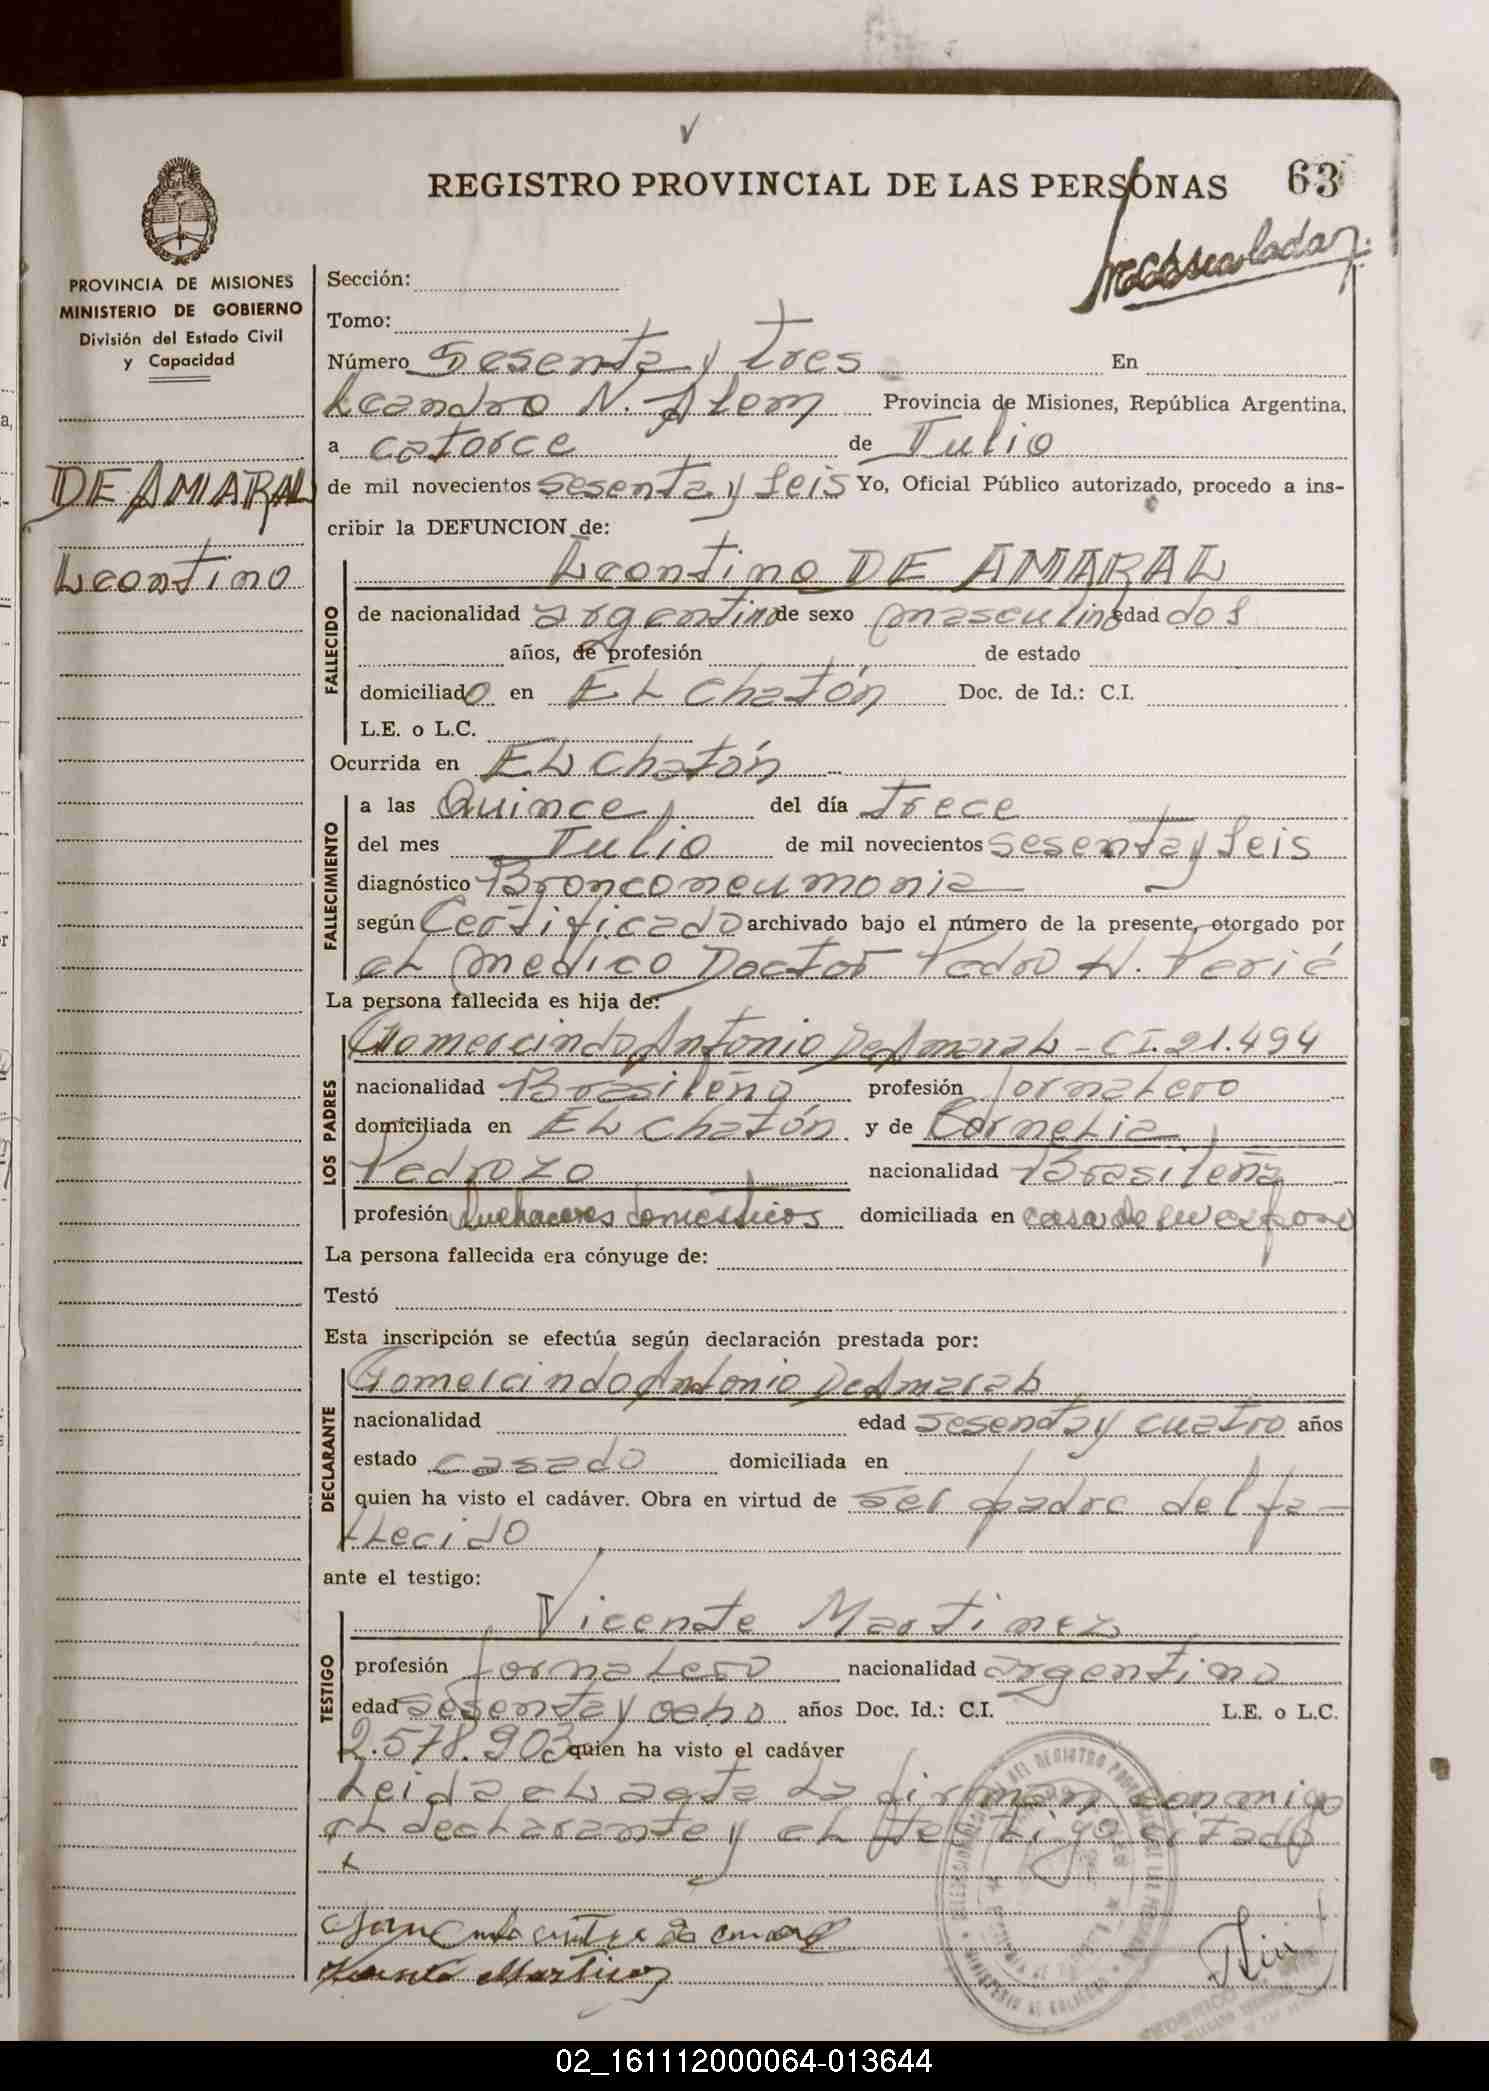 REGISTRO PROVINCIAL DE LAS PERSONAS 63
PROVINCIA DE MISIONES
MINISTERIO DE GOBIERNO
División del Estado Civil
y Capacidad
DE AMARAL
Leontino
Sección:
Tomo:
Número Sesenta y tres En
Leandro N. Alem Provincia de Misiones, República Argentina,
a catorce de Julio
de mil novecientos sesenta y seis Yo, Oficial Público autorizado, procedo a ins-
cribir la DEFUNCION de:
Leontino DE AMARAL
FALLECIDO
de nacionalidad argentino de sexo masculino edad dos
años, de profesión de estado
domiciliado en EL Chatón Doc. de Id.: C.I.
L.E. o L.C.
Ocurrida en EL Chatón
FALLECIMIENTO
a las Quince del día trece
del mes Julio de mil novecientos sesenta y seis
diagnóstico Bronconeumonia
según Certificado archivado bajo el número de la presente, otorgado por
el medico Doctor Pedro W. Perié
La persona fallecida es hija de:
LOS PADRES
Gomercindo Antonio De Amaral - CI. 21.494
nacionalidad Brasileño profesión jornalero
domiciliada en EL Chatón y de Cornelia
Pedrozo nacionalidad Brasileña
profesión Quehaceres domesticos domiciliada en casa de su esposo
La persona fallecida era cónyuge de:
Testó
Esta inscripción se efectúa según declaración prestada por:
DECLARANTE
Gomercindo Antonio De Amaral
nacionalidad edad sesenta y cuatro años
estado casado domiciliada en
quien ha visto el cadáver. Obra en virtud de ser padre del fa-
llecido
ante el testigo:
TESTIGO
Vicente Martinez
profesión jornalero nacionalidad argentino
edad sesenta y ocho años Doc. Id.: C.I. L.E. o L.C.
2.578.903 quien ha visto el cadáver
Leida el acta la firman conmigo
el declarante y el testigo citado
Martinez
02_161112000064-013644